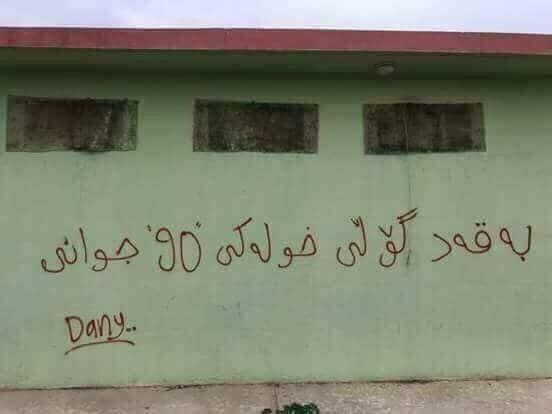 بەقەد گۆڵی خولەکی "90" جوانی
Dany..